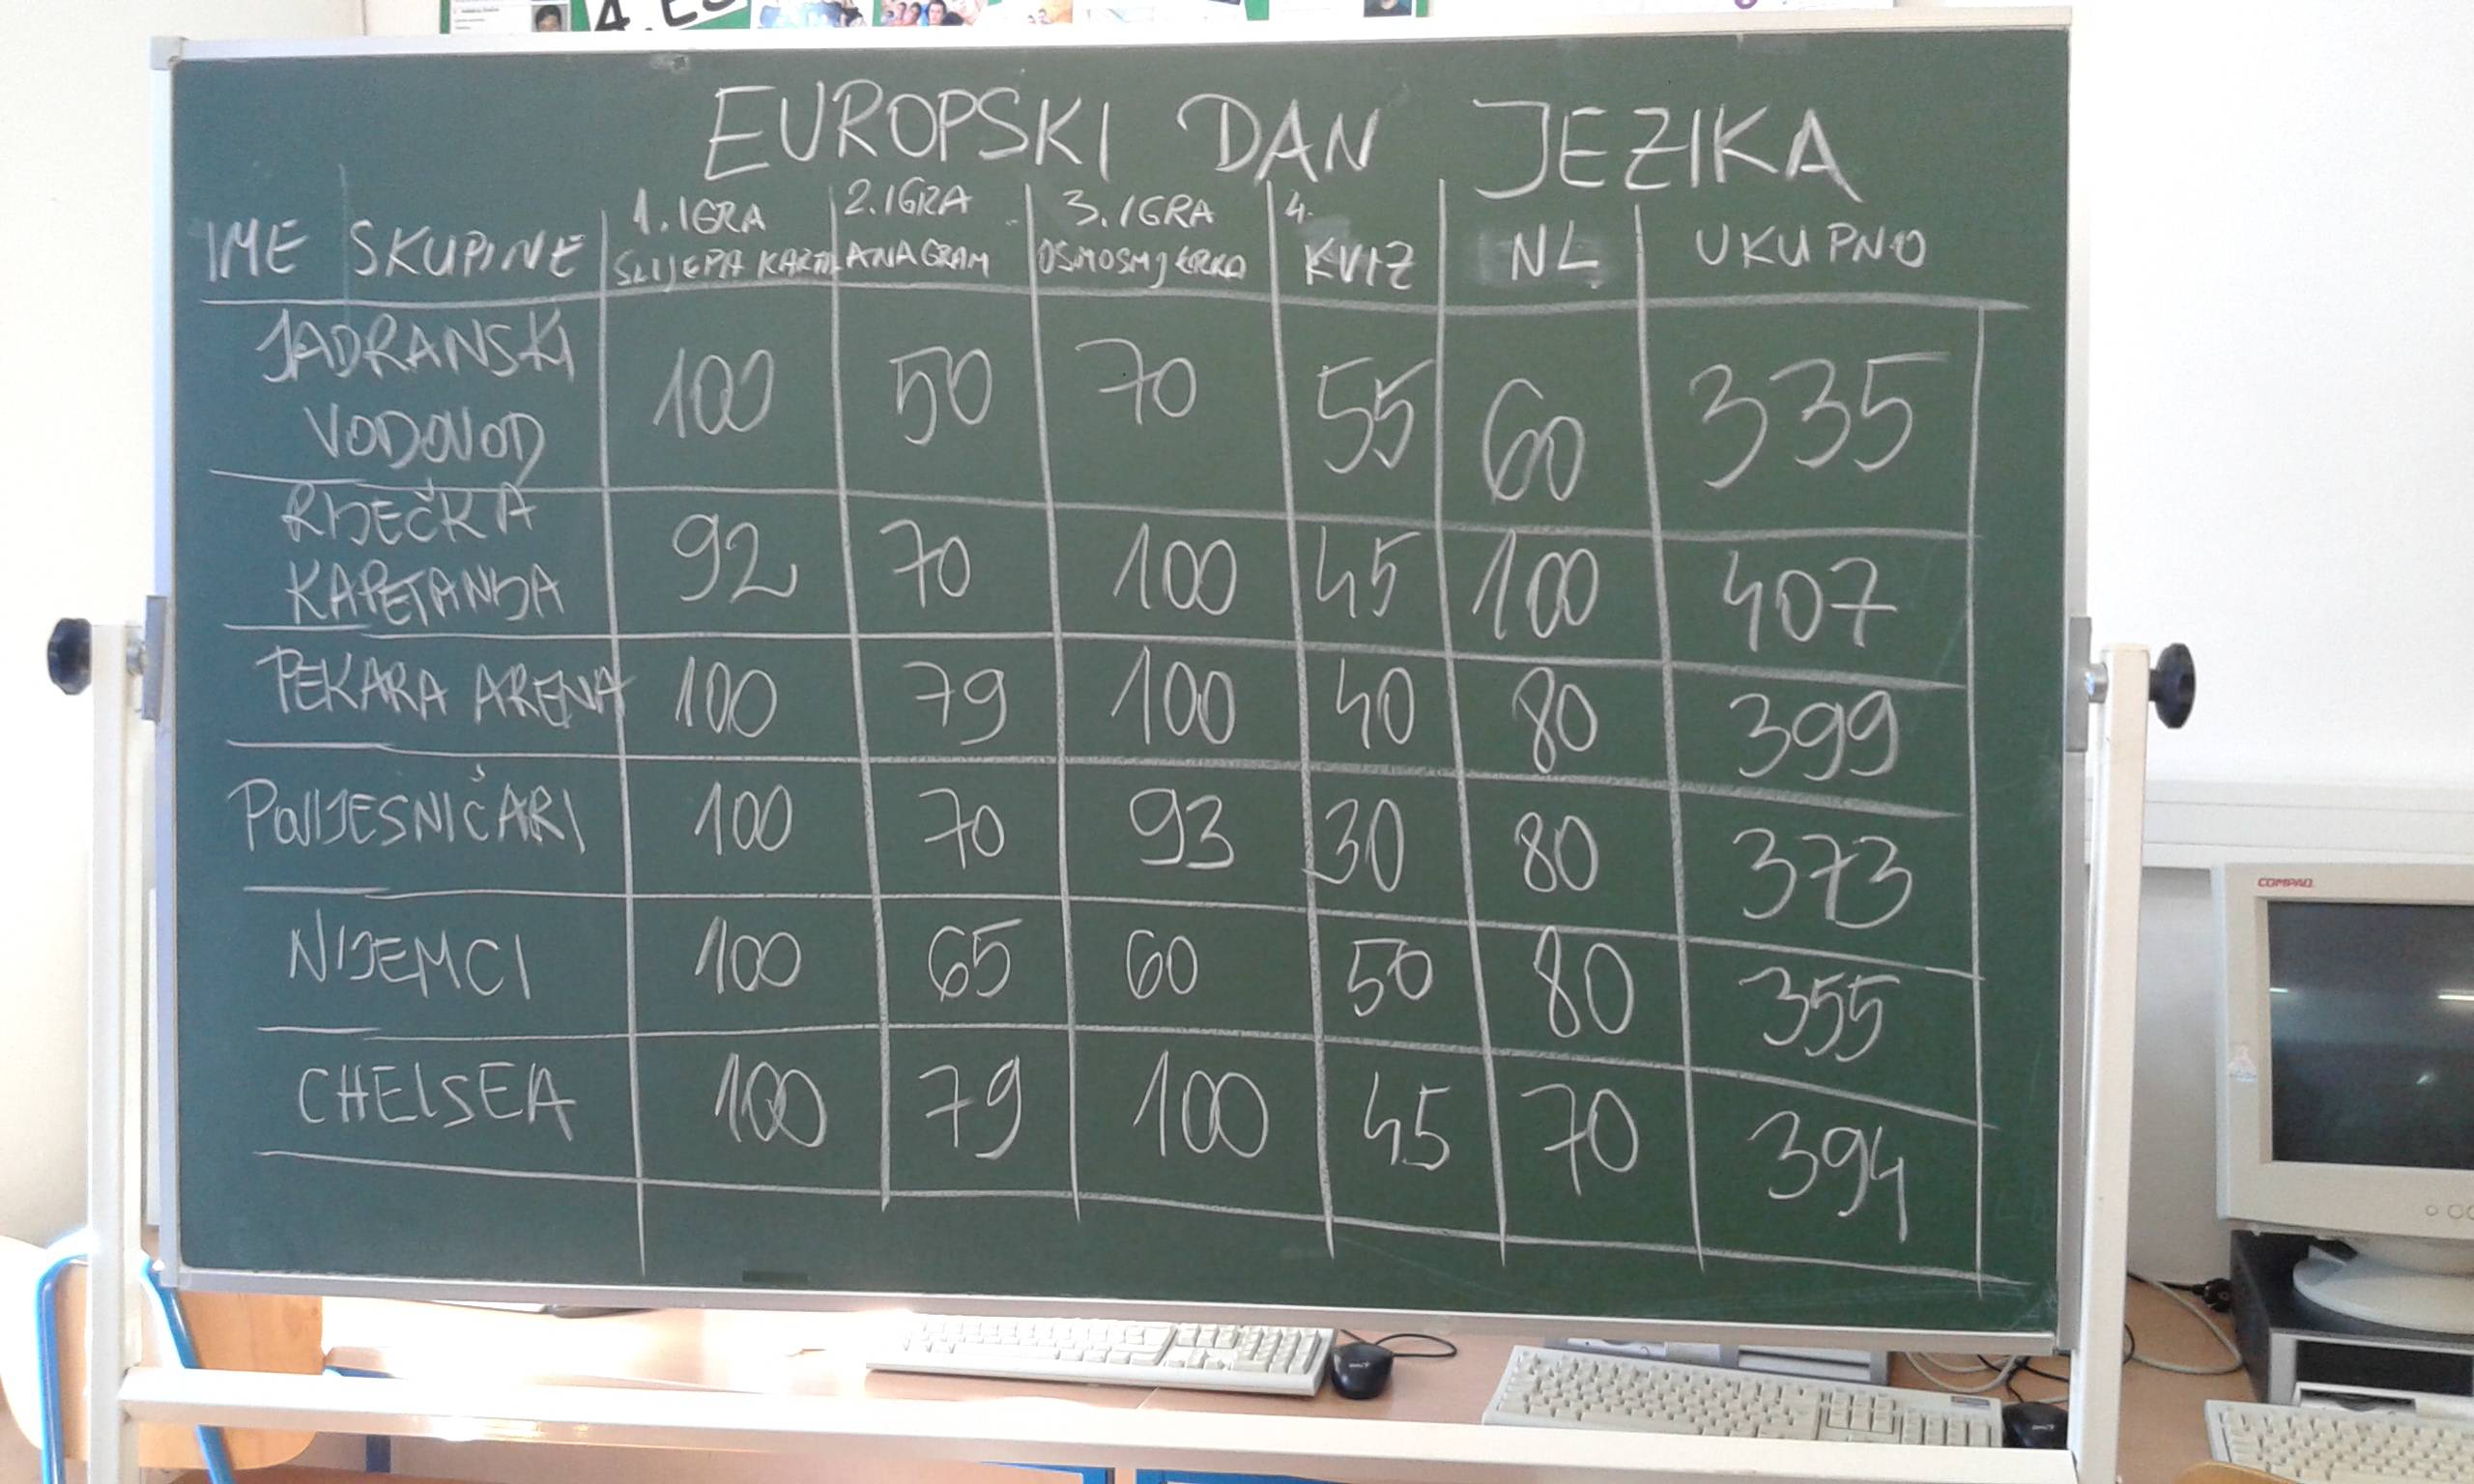 4.EU
EUROPSKI DAN JEZIKA
IME SKUPINE 1. IGRA SLIJEPA KARTA 2. IGRA ANAGRAM 3. IGRA OSMOSMJERKA 4. KVIZ NL UKUPNO
JADRANSKI VODOVOD 100 50 70 55 60 335
RIJEČKA KAPETANIJA 92 70 100 45 100 407
PEKARA ARENA 100 79 100 40 80 399
POVIJESNIČARI 100 70 93 30 80 373
NIJEMCI 100 65 60 50 80 355
CHELSEA 100 79 100 45 70 394
COMPAQ